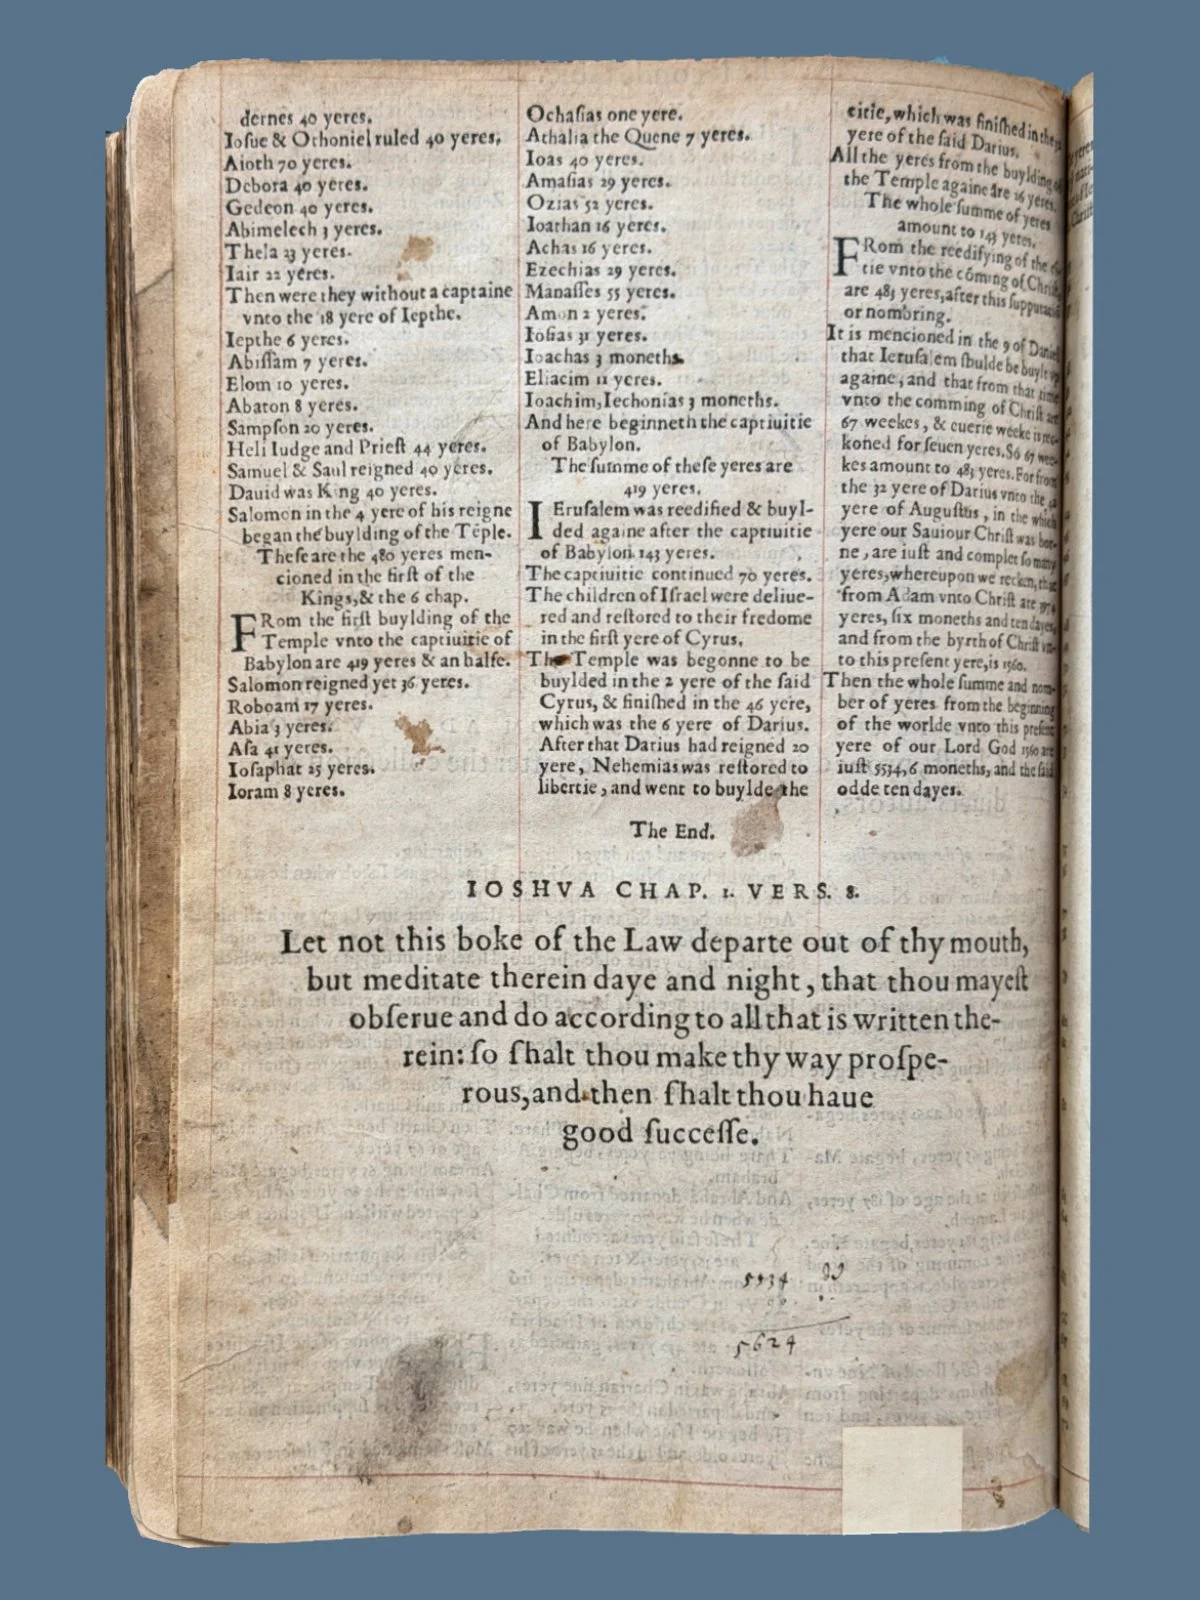 dernes 40 yeres.
Iosue & Othoniel ruled 40 yeres.
Aioth 70 yeres.
Debora 40 yeres.
Gedeon 40 yeres.
Abimelech 3 yeres.
Thela 23 yeres.
Iair 22 yeres.
Then were they without a captaine
vnto the 18 yere of Iepthe.
Iepthe 6 yeres.
Abissam 7 yeres.
Elom 10 yeres.
Abaton 8 yeres.
Sampson 20 yeres.
Heli Iudge and Priest 44 yeres.
Samuel & Saul reigned 40 yeres.
Dauid was King 40 yeres.
Salomon in the 4 yere of his reigne
began the buylding of the Tēple.
These are the 480 yeres men-
cioned in the first of the
Kings, & the 6 chap.
FRom the first buylding of the
Temple vnto the captiuitie of
Babylon are 419 yeres & an halfe.
Salomon reigned yet 36 yeres.
Roboam 17 yeres.
Abia 3 yeres.
Asa 41 yeres.
Iosaphat 25 yeres.
Ioram 8 yeres.
Ochasias one yere.
Athalia the Quene 7 yeres.
Ioas 40 yeres.
Amasias 29 yeres.
Ozias 52 yeres.
Ioathan 16 yeres.
Achas 16 yeres.
Ezechias 29 yeres.
Manasses 55 yeres.
Amon 2 yeres.
Iosias 31 yeres.
Ioachas 3 moneths.
Eliacim 11 yeres.
Ioachim, Iechonias 3 moneths.
And here beginneth the captiuitie
of Babylon.
The summe of these yeres are
419 yeres.
IErusalem was reedified & buyl-
ded againe after the captiuitie
of Babylon 143 yeres.
The captiuitie continued 70 yeres.
The children of Israel were deliue-
red and restored to their fredome
in the first yere of Cyrus.
The Temple was begonne to be
buylded in the 2 yere of the said
Cyrus, & finished in the 46 yere,
which was the 6 yere of Darius.
After that Darius had reigned 20
yere, Nehemias was restored to
libertie, and went to buylde the
citie, which was finished in the
yere of the said Darius.
All the yeres from the buylding of
the Temple againe are 26 yeres.
The whole summe of yeres
amount to 143 yeres.
FRom the reedifying of the ci-
tie vnto the cōming of Christ
are 483 yeres, after this supputacion
or nombring.
It is mencioned in the 9 of Daniel
that Ierusalem shulde be buylt vp
againe, and that from that time
vnto the comming of Christ are
67 weekes, & euerie weeke is rec-
koned for seuen yeres. So 67 wee-
kes amount to 483 yeres. For from
the 32 yere of Darius vnto the 42
yere of Augustus, in the which
yere our Sauiour Christ was bor-
ne, are iust and complet so many
yeres, whereupon we recken, that
from Adam vnto Christ are 3974
yeres, six moneths and ten dayes,
and from the byrth of Christ vn-
to this present yere, is 1560.
Then the whole summe and nom-
ber of yeres from the beginning
of the worlde vnto this present
yere of our Lord God 1560 are
iust 5534, 6 moneths, and the said
odde ten dayes.
The End.
IOSHVA CHAP. 1. VERS. 8.
Let not this boke of the Law departe out of thy mouth,
but meditate therein daye and night, that thou mayest
obserue and do according to all that is written the-
rein: so shalt thou make thy way prospe-
rous, and then shalt thou haue
good successe.
5534
90
5624